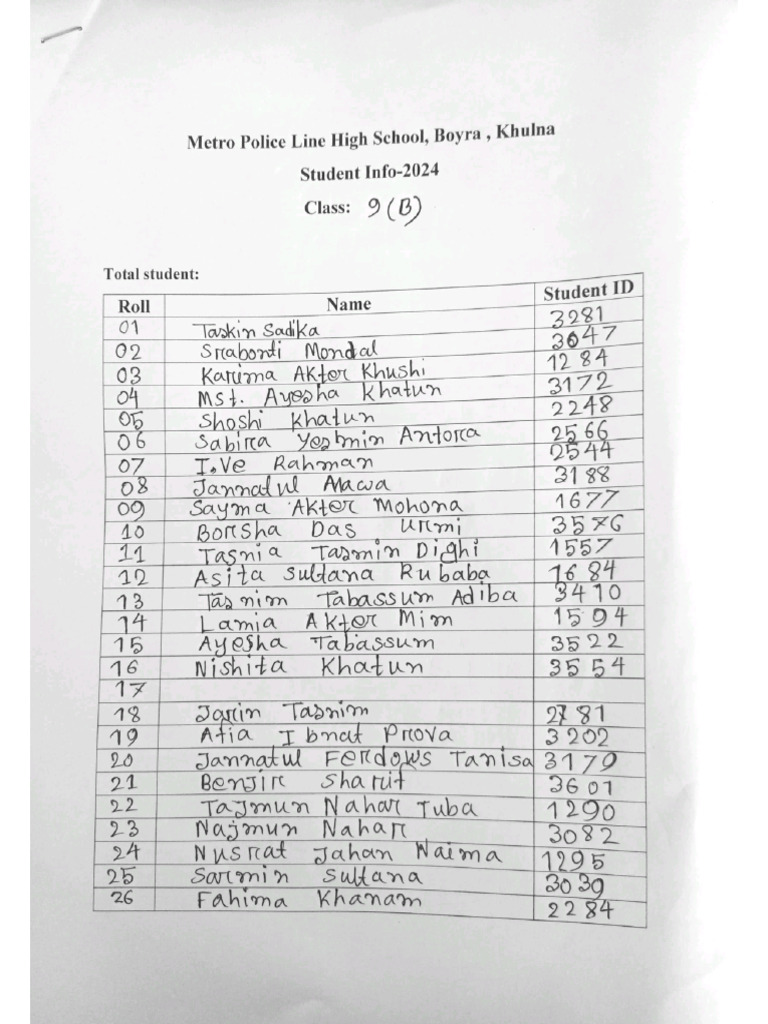 Metro Police Line High School, Boyra , Khulna
Student Info-2024
Class: 9 (B)
Total student:
Roll Name Student ID
01 Taskin Sadika 3281
02 Srabonti Mondal 3647
03 Karima AKter Khushi 1284
04 Mst. Ayesha Khatun 3172
05 Shoshi Khatun 2248
06 Sabira Yesmin Antora 2566
07 I.Ve Rahman 2544
08 Jannatul Mawa 3188
09 Sayma AKter Mohona 1677
10 Borsha Das Urmi 3576
11 Tasnia Tasmin Dighi 1557
12 Asita Sultana Rubaba 1684
13 Tasnim Tabassum Adiba 3410
14 Lamia AKter Mim 1594
15 Ayesha Tabassum 3522
16 Nishita Khatun 3554
17
18 Jarin Tasnim 2781
19 Afia Ibnat Prova 3202
20 Jannatul Ferdows Tanisa 3179
21 Benjir Sharif 3601
22 Tajmun Nahar Tuba 1290
23 Najmun Nahar 3082
24 Nusrat Jahan Naima 1295
25 Sarmin Sultana 3039
26 Fahima Khanam 2284